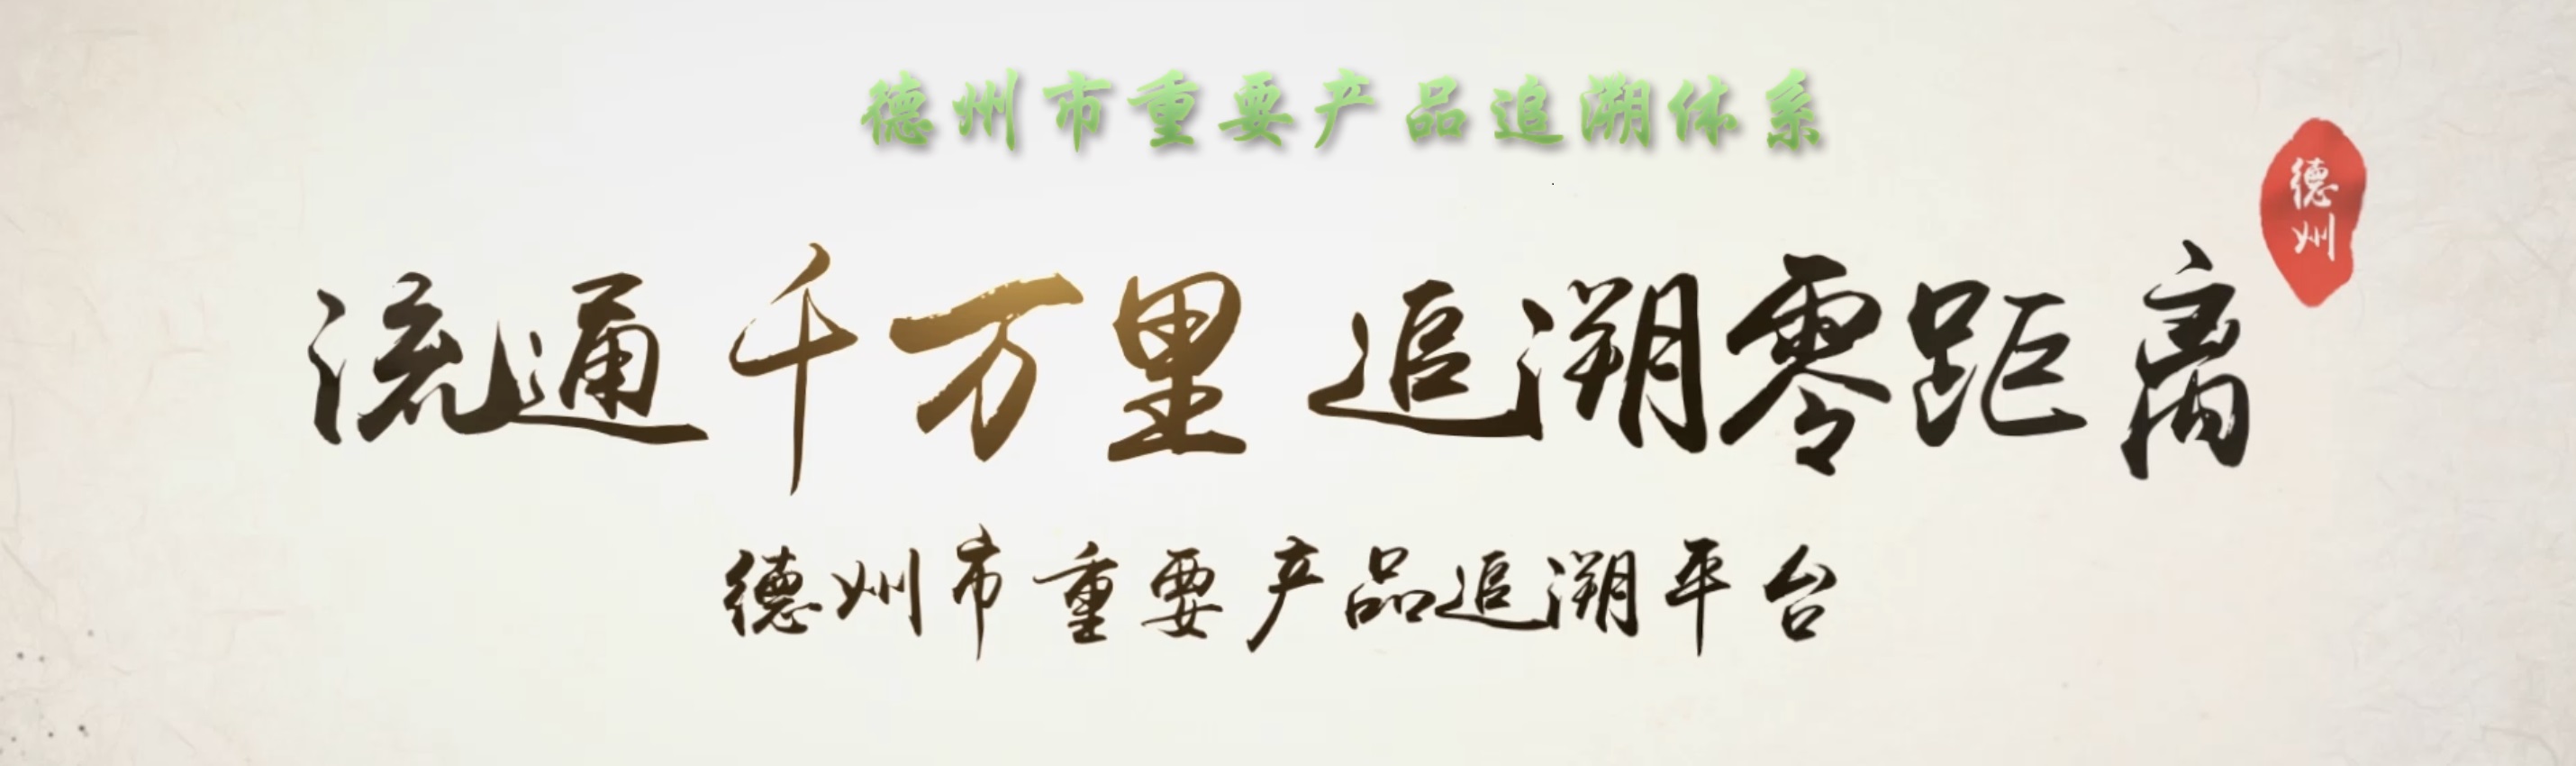 德州市重要产品追溯体系
德州
流通千万里 追溯零距离
德州市重要产品追溯平台